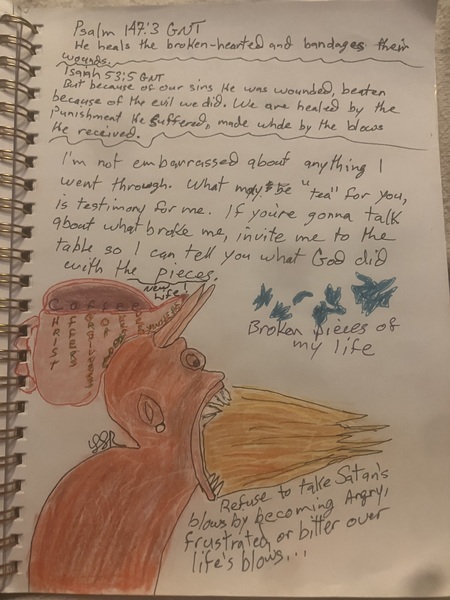 Psalm 147:3 GNT
He heals the broken-hearted and bandages their
wounds.
Isaiah 53:5 GNT
But because of our sins He was wounded, beaten
because of the evil we did. We are healed by the
Punishment He suffered, made whole by the blows
He received.
I'm not embarrassed about anything I
went through. What may be "tea" for you,
is testimony for me. If you're gonna talk
about what broke me, invite me to the
table so I can tell you what God did
with the pieces.
New
Life!
Coffee
Christ
Offers
Forgiveness
For
Broken pieces of
my life
Refuse to take Satan's
blows by becoming Angry,
frustrated, or bitter over
life's blows...